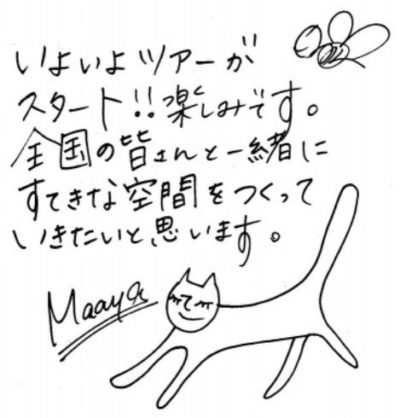 いよいよツアーが
スタート!!楽しみです。
全国の皆さんと一緒に
すてきな空間をつくって
いきたいと思います。
Maaya